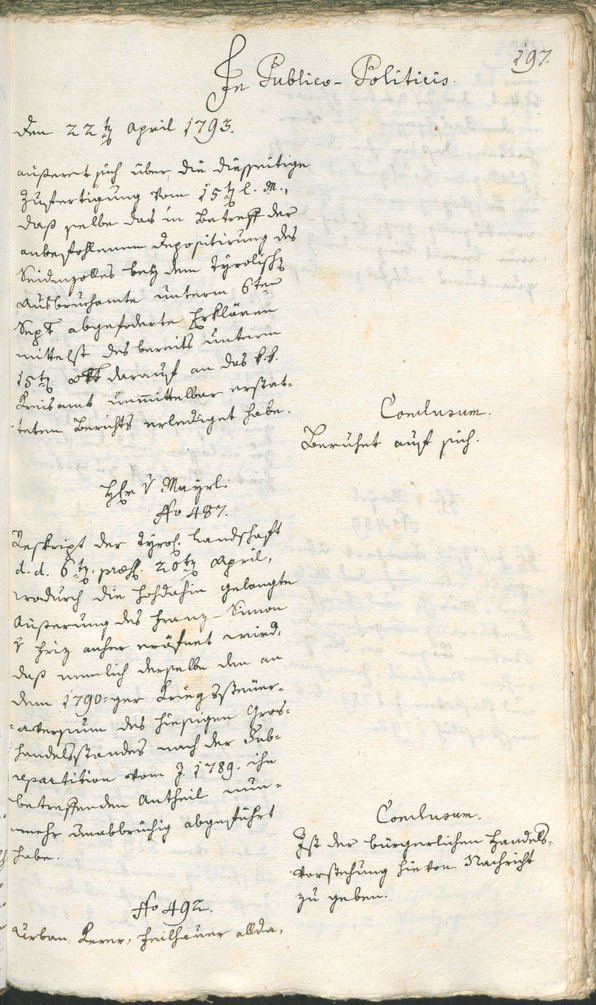 197.
In Publico-Politicis.
den 22t April 1793.
äußeret sich über die diesseitige
Zufertigung vom 15t l. M.,
daß selbe das in Betreff der
anbefohlenen Depositirung des
Seidenzolles bey dem Tyrolisch
Ausbruchamte unterm 6ten
Sept abgeforderte Erklären
mittelst des bereits unterm
15t darauf an das k. k.
Kreisamt unmittelbar erstat-
teten Berichts erlediget habe.
Conclusum.
Beruhet auf sich.
Hr v Mayrl.
No 487.
Reskript der Tyrol. Landschaft
d. d. 6t præs. 20t April,
wodurch die hohdahin gelangte
Äußerung des Franz Simon
v anher eröfnet wird,
daß nemlich derselbe den an
dem 1790-ger Kriegssteuer-
aversium des hiesigen Gros-
handelsstandes nach der Sub-
repartition vom J. 1789. ihn
betreffenden Antheil nun-
mehr unabbrüchig abgeführt
habe.
Conclusum.
Ist der bürgerlichen Handels-
vorstehung hievon Nachricht
zu geben.
No 492.
Urban Feilhauer allda,